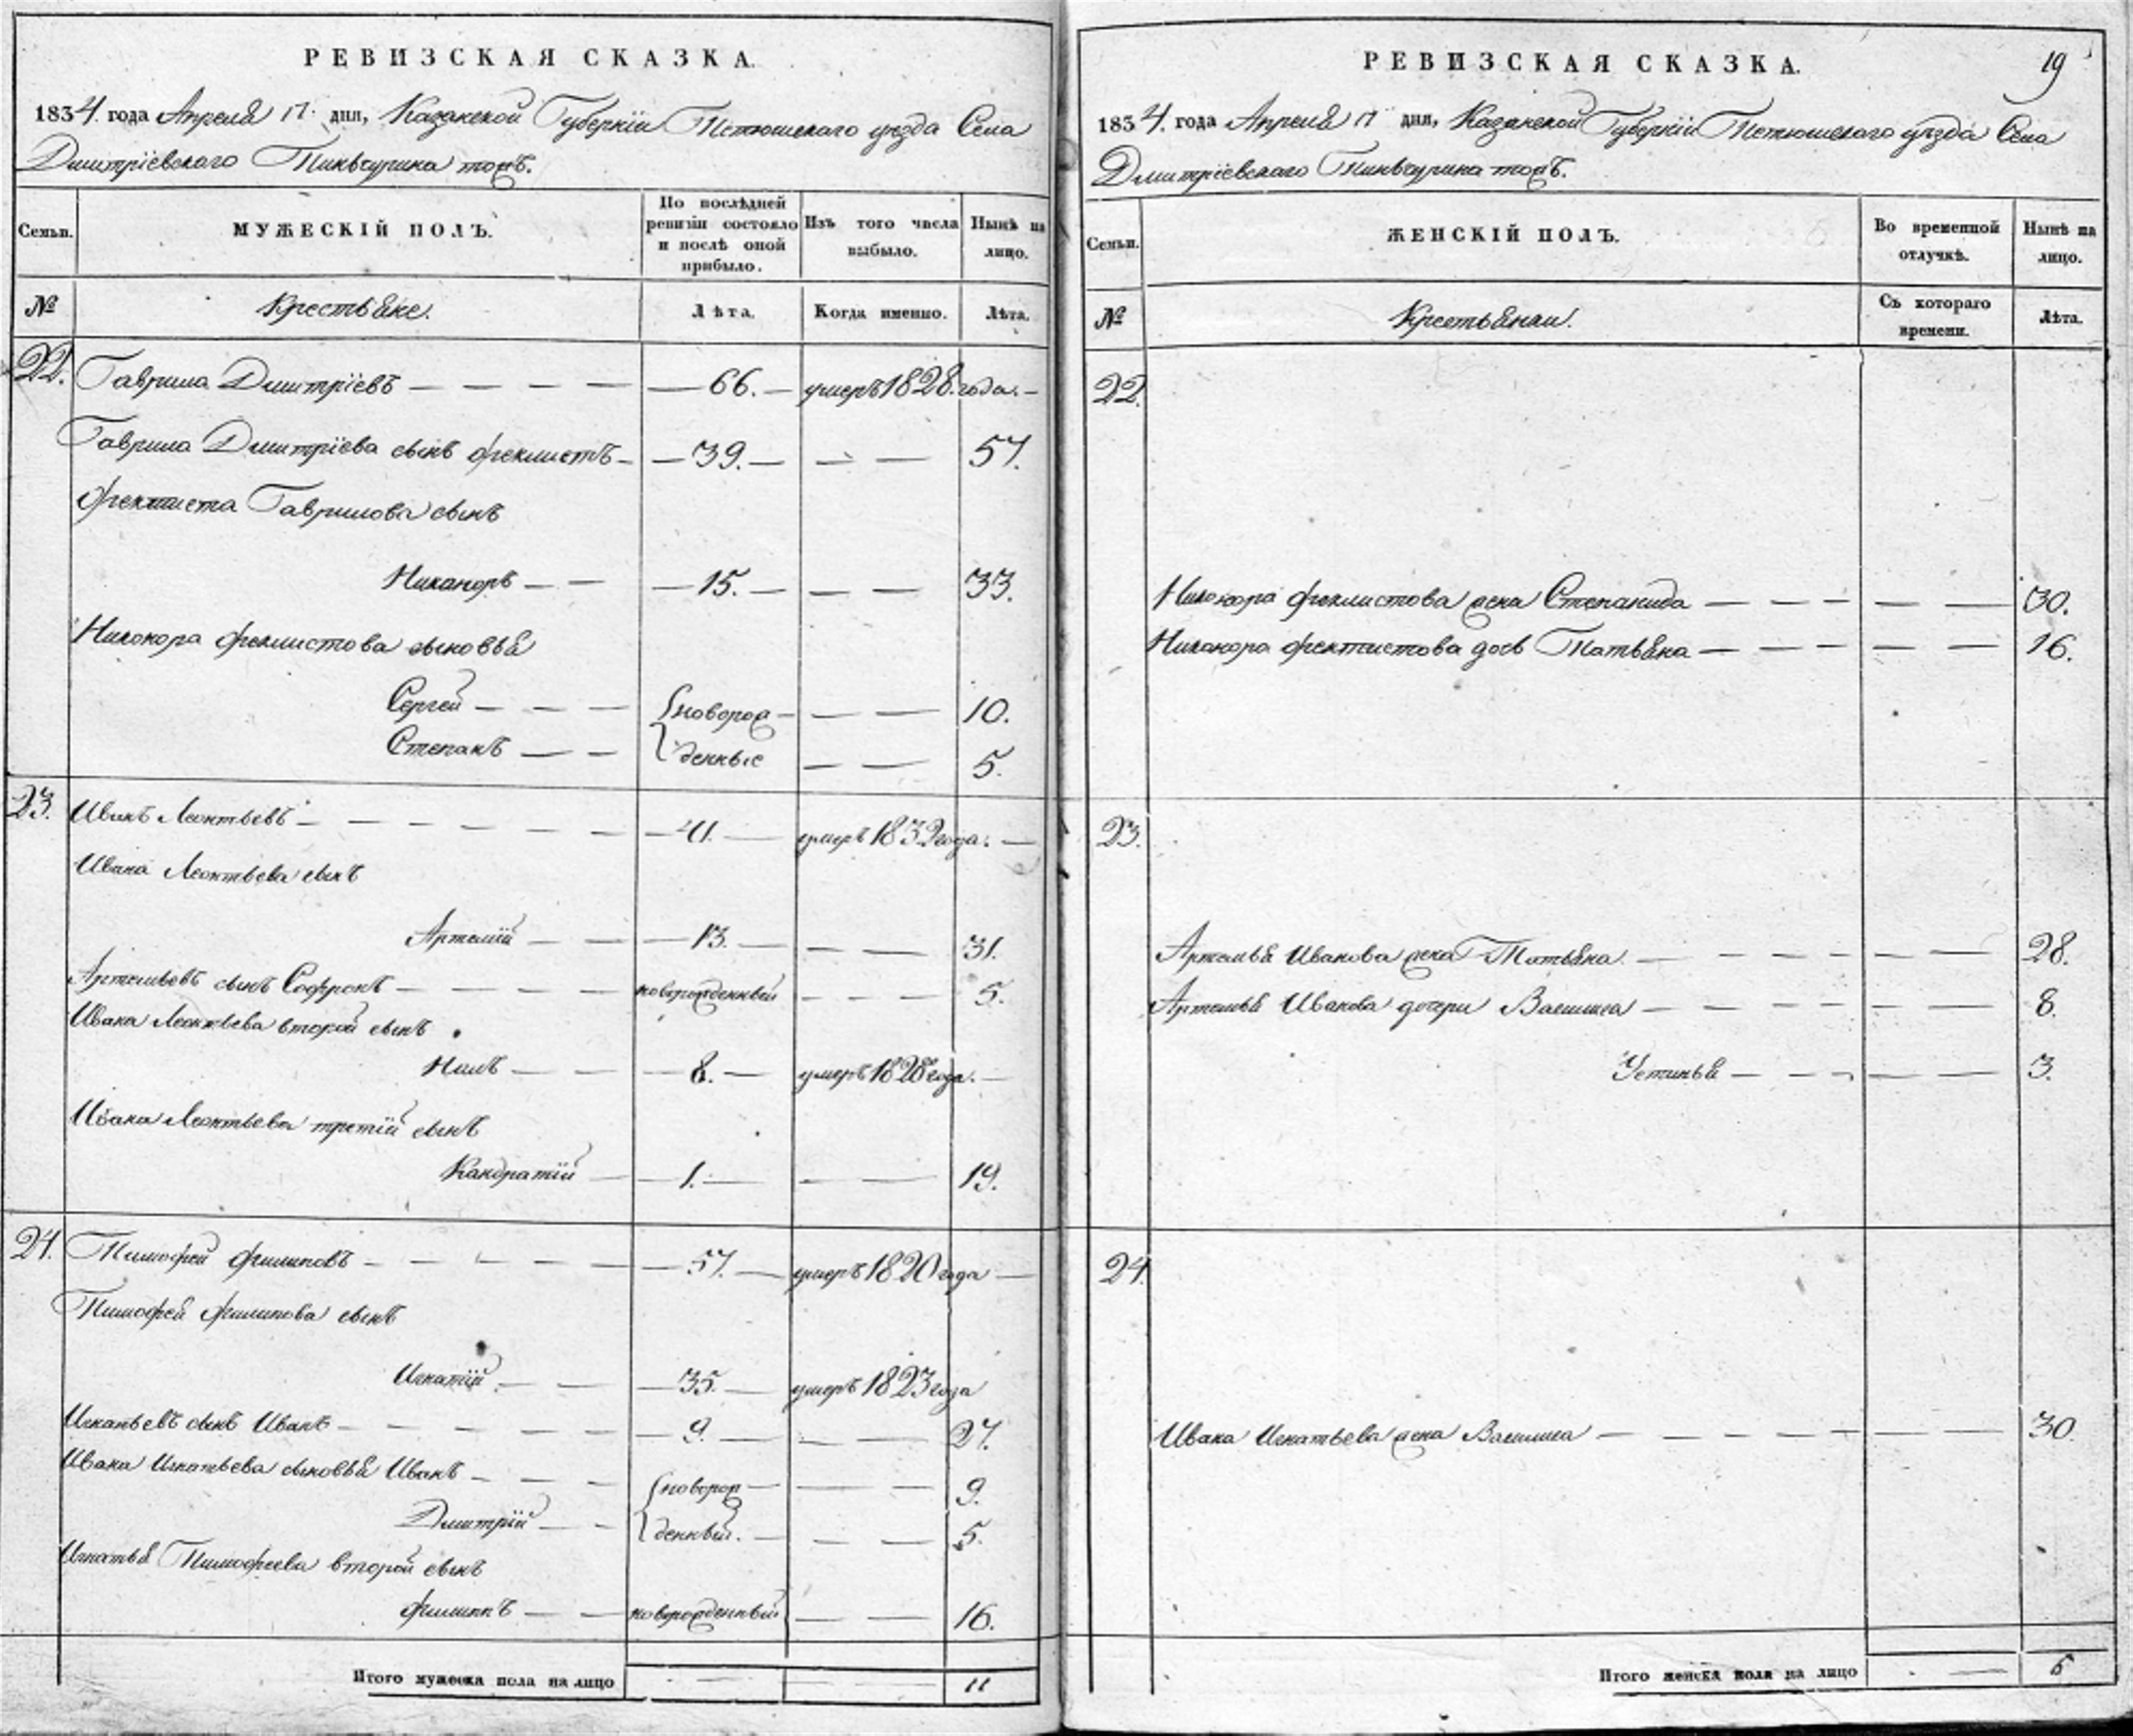 РЕВИЗСКАЯ СКАЗКА.
1834. года Апреля 17. дня, Казанской Губернии Тетюшскаго уезда Села
Дмитріевскаго Тиньчурина тожъ.
Семьи.
МУЖЕСКІЙ ПОЛЪ.
По послѣдней ревизіи состояло и послѣ оной прибыло.
Изъ того числа выбыло.
Нынѣ на лицо.
№
Крестьяне.
Лѣта.
Когда именно.
Лѣта.
22. Гаврила Дмитріевъ — 66. — умеръ 1828. года. —
Гаврила Дмитріева сынъ Феклистъ — 39. — 57.
Феклиста Гаврилова сынъ
Никаноръ — 15. — 33.
Никонора Феклистова сыновья
Сергей — новорож- — 10.
Степанъ — денные — 5.
23. Иванъ Леонтьевъ — 41. — умеръ 1832 года. —
Ивана Леонтьева сынъ
Артемій — 13. — 31.
Артемьевъ сынъ Софронъ — новорожденный — 5.
Ивана Леонтьева второй сынъ
Нилъ — 8. — умеръ 1828 года. —
Ивана Леонтьева третій сынъ
Кандратій — 1. — 19.
24. Тимофей Филиповъ — 57. — умеръ 1820 года —
Тимофей Филипова сынъ
Игнатій — 35. — умеръ 1823 года
Игнатьевъ сынъ Иванъ — 9. — 27.
Ивана Игнатьева сыновья Иванъ — новорож- — 9.
Дмитрій — денный. — 5.
Игнатья Тимофеева второй сынъ
Филиппъ — новорожденный — 16.
Итого мужеска пола на лицо — — 11
РЕВИЗСКАЯ СКАЗКА.
19
1834. года Апреля 17 дня, Казанской Губерніи Тетюшскаго уезда Села
Дмитріевскаго Тиньчурина тожъ.
Семьи.
ЖЕНСКІЙ ПОЛЪ.
Во временной отлучкѣ.
Нынѣ на лицо.
№
Крестьянки.
Съ котораго времени.
Лѣта.
22.
Никонора Феклистова жена Степанида — 30.
Никонора Фектистова дочь Татьяна — 16.
23.
Артемья Иванова жена Татьяна — 28.
Артемья Иванова дочери Василиса — 8.
Устинья — 3.
24.
Ивана Игнатьева жена Василиса — 30.
Итого женска пола на лицо — 6